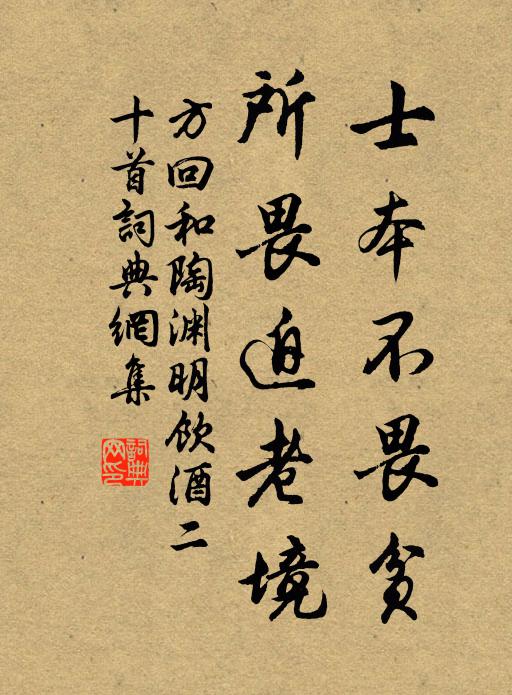 士本不畏貧
所畏迫老境
方回和陶淵明飲酒二
十首詞典網集
詞典網印